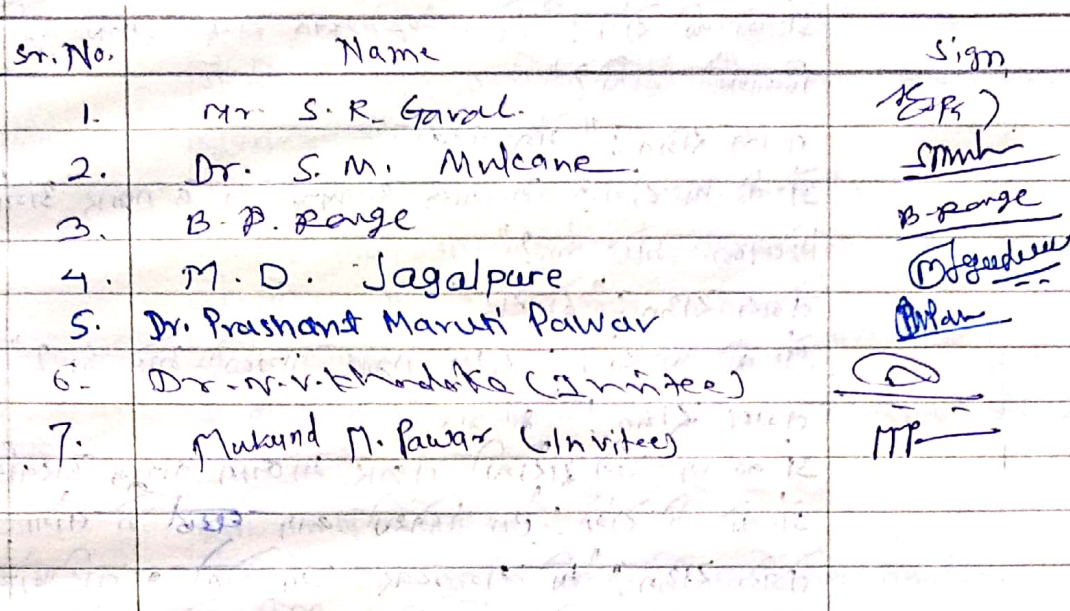 Sr. No. Name Sign
1. Mr. S. R. Gaval.
2. Dr. S. M. Mulcane.
3. B. P. Range B-Range
4. M. D. Jagalpure.
5. Dr. Prashant Maruti Pawar
6- Dr. N. V. (Invitee)
7. Mukund M. Pawar (Invitee) MP